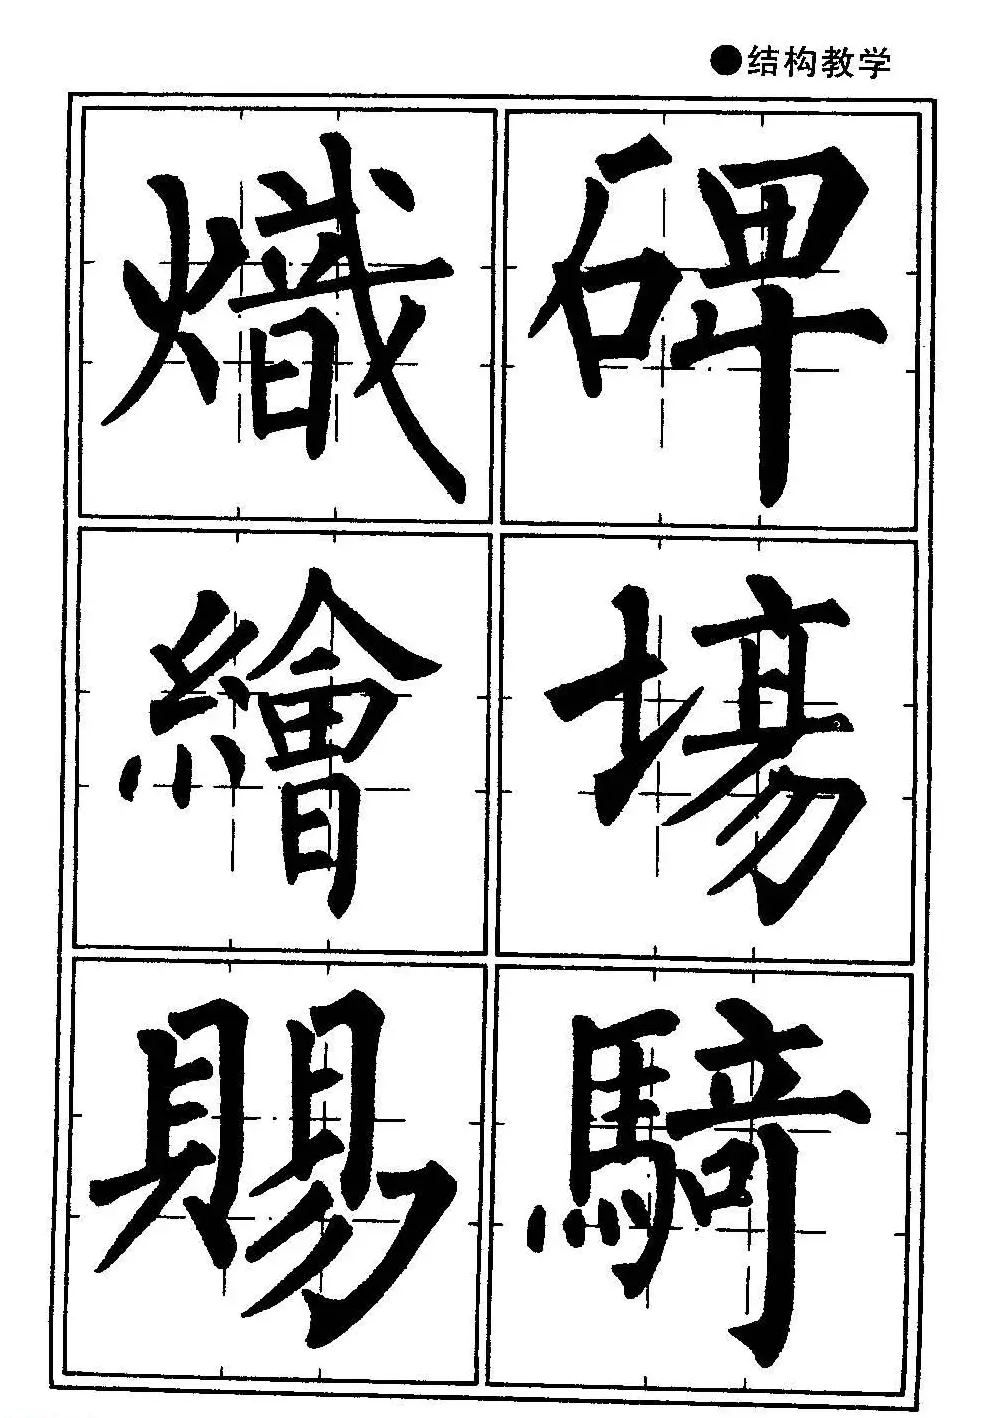 ●结构教学
碑塲騎
熾繪賜